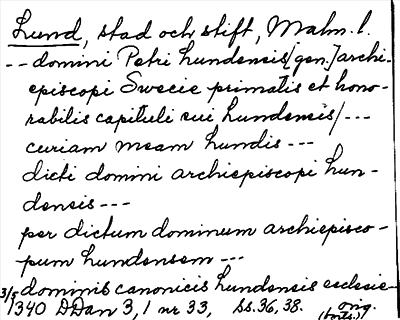 Lund, stad och stift, Malm. l.
-- domini Petri lundensis [gen.] archi-
episcopi Swecie primatis et hono-
rabilis capituli sui lundensis/ ---
curiam meam lundis ---
dicti domini archiepiscopi lun-
densis ---
per dictum dominum archiepisco-
pum lundensem ---
dominis canonicis lundensis ecclesie-
3/5 1340 DDan 3,1 nr 33, ss. 36, 38. orig.
(forts.)